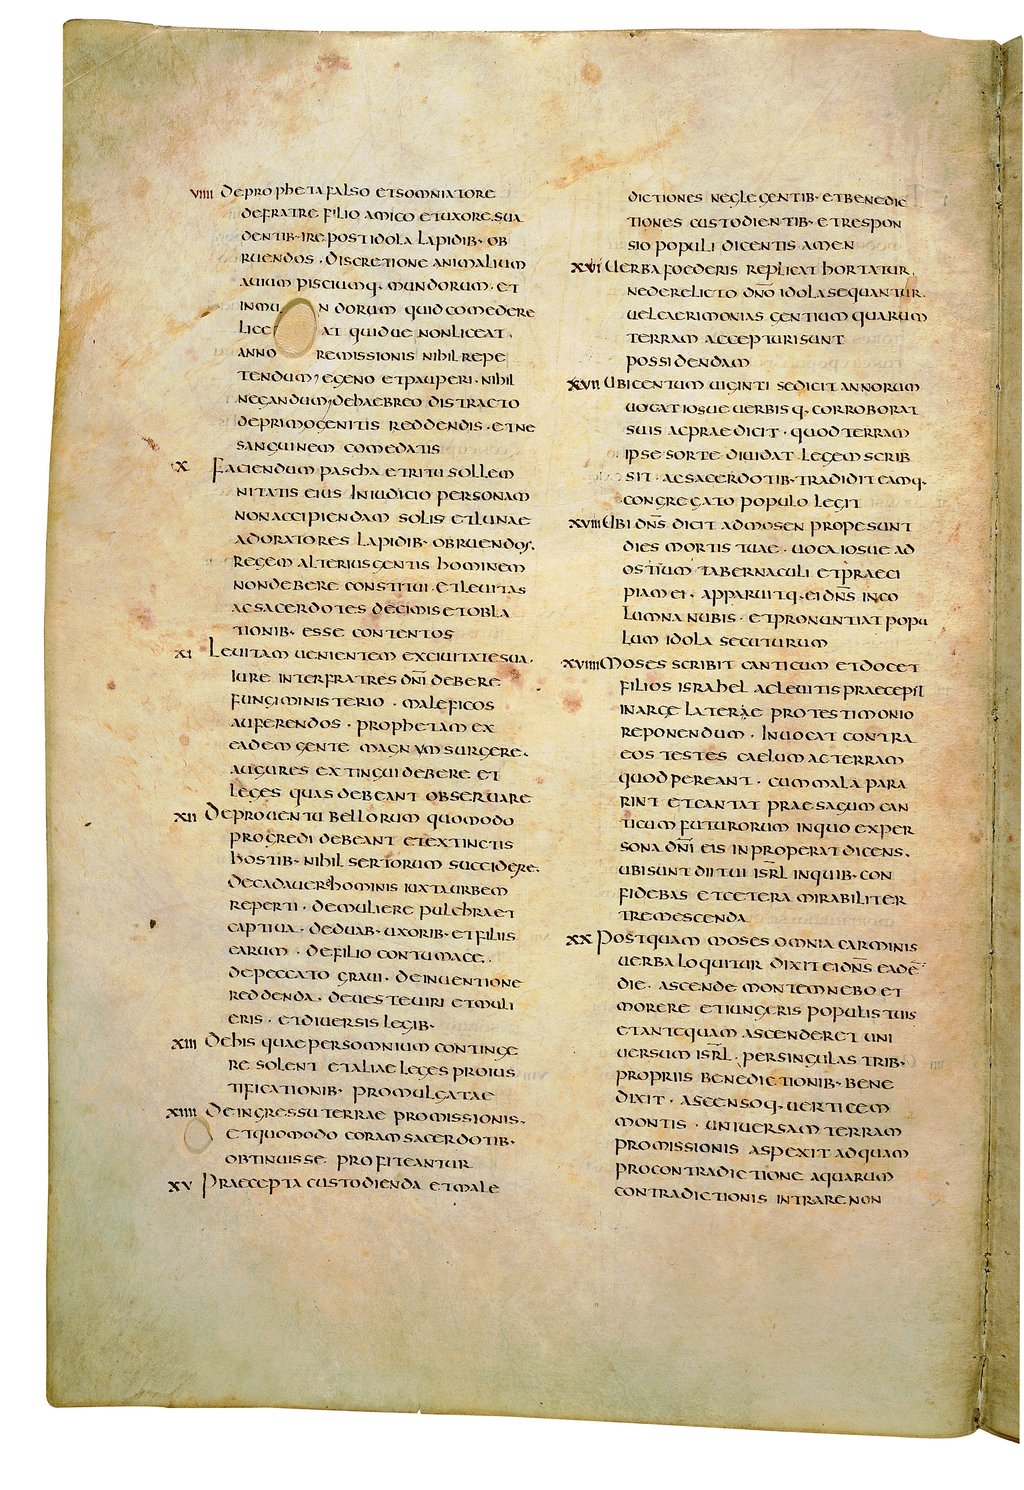 VIIII DEPROPHETA FALSO ET SOMNIATORE
DE FRATRE FILIO AMICO ET UXORE SUA
DENTIB· IRE POST IDOLA LAPIDIB· OB
RUENDOS · DISCRETIONE ANIMALIUM
AUIUM PISCIUMQ· MUNDORUM · ET
INMUNDORUM QUID COMEDERE
LICEAT QUIDUE NON LICEAT ·
ANNO REMISSIONIS NIHIL REPE
TENDUM, EGENO ET PAUPERI · NIHIL
NEGANDUM, DE HAEBREO DISTRACTO
DE PRIMOGENITIS REDDENDIS · ET NE
SANGUINEM COMEDATIS
X FACIENDUM PASCHA ET RITU SOLLEM
NITATIS EIUS IN IUDICIO PERSONAM
NON ACCIPIENDAM SOLIS ET LUNAE
ADORATORES LAPIDIB· OBRUENDOS·
REGEM ALTERIUS GENTIS HOMINEM
NON DEBERE CONSTITUI · ET LEUITAS
AC SACERDOTES DECIMIS ET OBLA
TIONIB· ESSE CONTENTOS
XI LEUITAM UENIENTEM EX CIUITATE SUA ·
IURE INTER FRATRES DNI DEBERE
FUNGI MINISTERIO · MALEFICOS
AUFERENDOS · PROPHETAM EX
EADEM GENTE MAGNUM SURGERE ·
AUGURES EXTINGUI DEBERE ET
LEGES QUAS DEBEANT OBSERUARE
XII DE PROUENTU BELLORUM QUOMODO
PROGREDI DEBEANT ET EXTINCTIS
HOSTIB· NIHIL SERTORUM SUCCIDERE·
DE CADAUERE HOMINIS IUXTA URBEM
REPERTI · DE MULIERE PULCHRA ET
CAPTIUA · DE DUAB· UXORIB· ET FILIIS
EARUM · DE FILIO CONTUMACE ·
DE PECCATO GRAUI · DE INUENTIONE
REDDENDA · DE UESTE UIRI ET MULI
ERIS · ET DIUERSIS LEGIB·
XIII DE HIS QUAE PER SOMNIUM CONTINGE
RE SOLENT ET ALIAE LEGES PRO IUS
TIFICATIONIB· PROMULGATAE
XIIII DE INGRESSU TERRAE PROMISSIONIS ·
ET QUOMODO CORAM SACERDOTIB·
OBTINUISSE PROFITEANTUR
XV PRAECEPTA CUSTODIENDA ET MALE
DICTIONES NEGLEGENTIB· ET BENEDIC
TIONES CUSTODIENTIB· ET RESPON
SIO POPULI DICENTIS AMEN
XVI UERBA FOEDERIS REPLICAT HORTATUR ·
NE DERELICTO DNO IDOLA SEQUANTUR ·
UEL CAERIMONIAS GENTIUM QUARUM
TERRAM ACCEPTURI SUNT
POSSIDENDAM
XVII UBI CENTUM UIGINTI SE DICIT ANNORUM
UOCAT IOSUE UERBISQ· CORROBORAT
SUIS AC PRAEDICIT · QUOD TERRAM
IPSE SORTE DIUIDAT LEGEM SCRIB
SIT · AC SACERDOTIB· TRADIDIT EAMQ·
CONGREGATO POPULO LEGIT
XVIII UBI DNS DICIT AD MOSEN PROPE SUNT
DIES MORTIS TUAE · UOCA IOSUE AD
OSTIUM TABERNACULI ET PRAECI
PIAM EI · APPARUITQ· EI DNS IN CO
LUMNA NUBIS · ET PRONUNTIAT POPU
LUM IDOLA SECUTURUM
XVIIII MOSES SCRIBIT CANTICUM ET DOCET
FILIOS ISRAHEL AC LEUITIS PRAECEPIT
IN ARCE LATERAE PRO TESTIMONIO
REPONENDUM · INUOCAT CONTRA
EOS TESTES CAELUM AC TERRAM
QUOD PEREANT · CUM MALA PARA
RINT ET CANTAT PRAESAGUM CAN
TICUM FUTURORUM IN QUO EX PER
SONA DNI EIS INPROPERAT DICENS ·
UBI SUNT DII TUI ISRL IN QUIB· CON
FIDEBAS ET CETERA MIRABILITER
TREMESCENDA
XX POSTQUAM MOSES OMNIA CARMINIS
UERBA LOQUITUR DIXIT EI DNS EADĒ
DIE · ASCENDE MONTEM NEBO ET
MORERE ET IUNGERIS POPULIS TUIS
ET ANTEQUAM ASCENDERET UNI
UERSUM ISRL · PER SINGULAS TRIB·
PROPRIIS BENEDICTIONIB· BENE
DIXIT · ASCENSOQ· UERTICEM
MONTIS · UNIUERSAM TERRAM
PROMISSIONIS ASPEXIT AD QUAM
PRO CONTRADICTIONE AQUARUM
CONTRADICTIONIS INTRARE NON